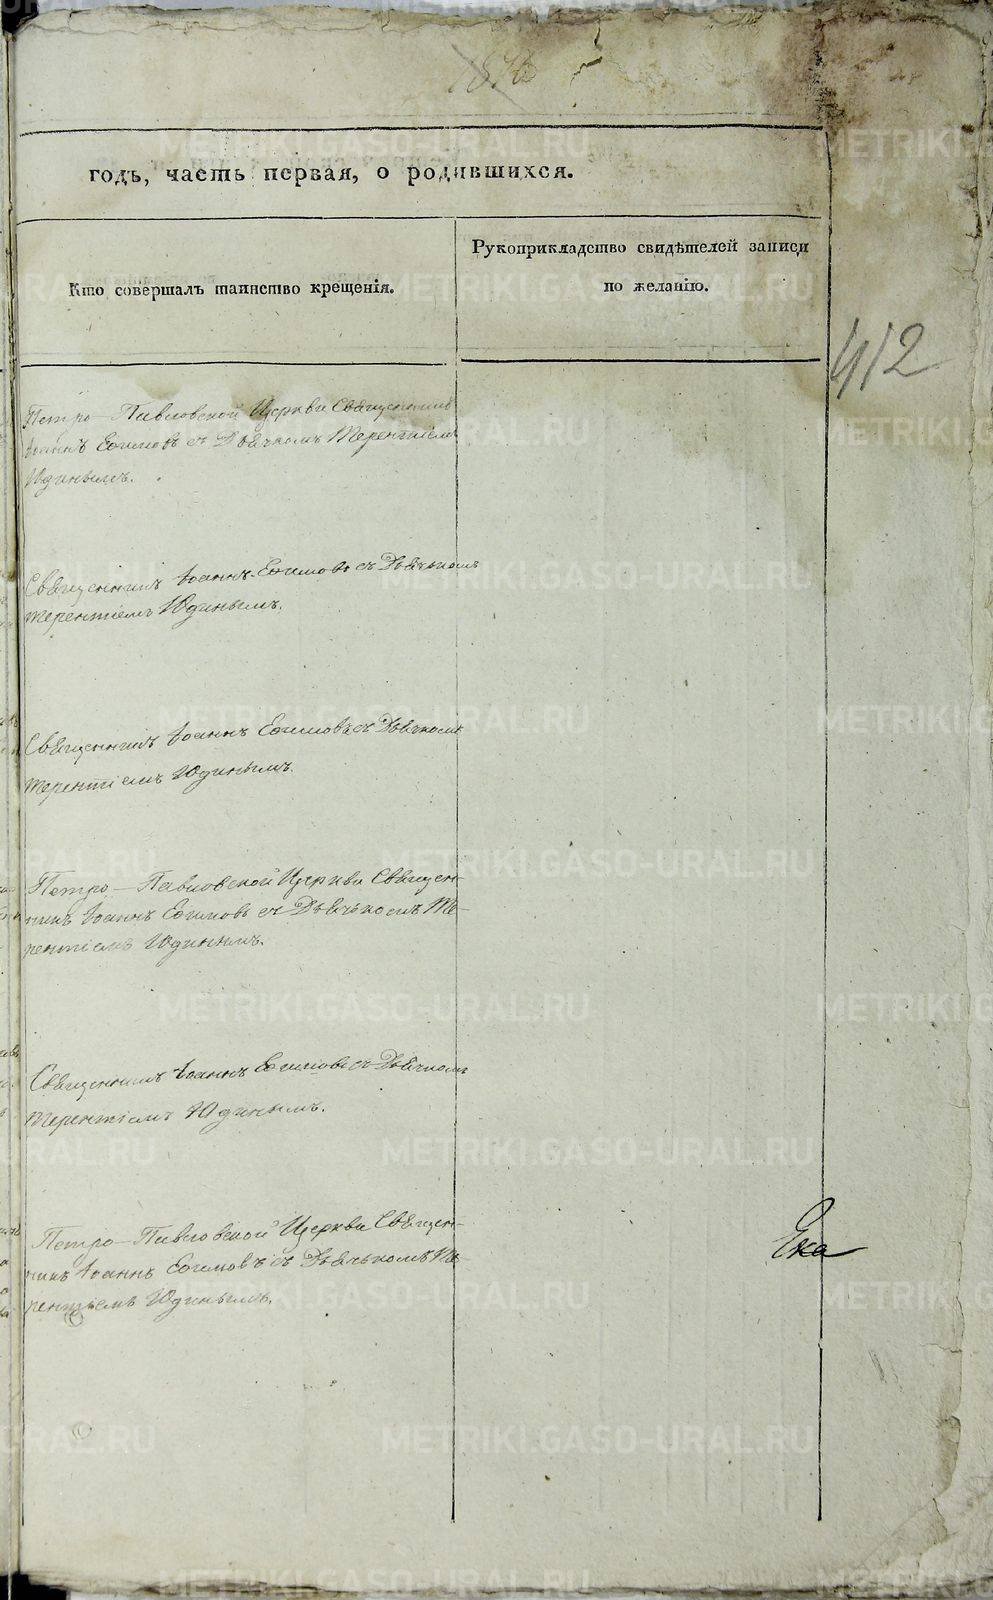 годъ, часть первая, о родившихся.
Кто совершалъ таинство крещенія.
Рукоприкладство свидѣтелей записи
по желанію.
412
Петро-Павловской Церкви Священникъ
Іоаннъ Ефимовъ съ Дьячкомъ Терентіемъ
Юдинымъ.
Священникъ Іоаннъ Ефимовъ съ Дьячькомъ
Терентіемъ Юдинымъ.
Священникъ Іоаннъ Ефимовъ съ Дьячкомъ
Терентіемъ Юдинымъ.
Петро-Павловской Церкви Священ-
никъ Іоаннъ Ефимовъ съ Дьячькомъ Те-
рентіемъ Юдинымъ.
Священникъ Іоаннъ Ефимовъ съ Дьячкомъ
Терентіемъ Юдинымъ.
Петро-Павловской Церкви Священ-
никъ Іоаннъ Ефимовъ съ Дьячькомъ Те-
рентіемъ Юдинымъ.
Ека
METRIKI.GASO-URAL.RU